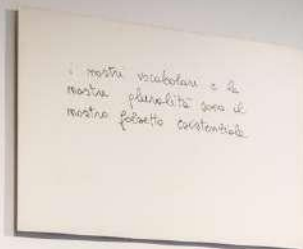 i nostri vocabolari e la
nostra pluralità sono il
nostro falsetto esistenziale